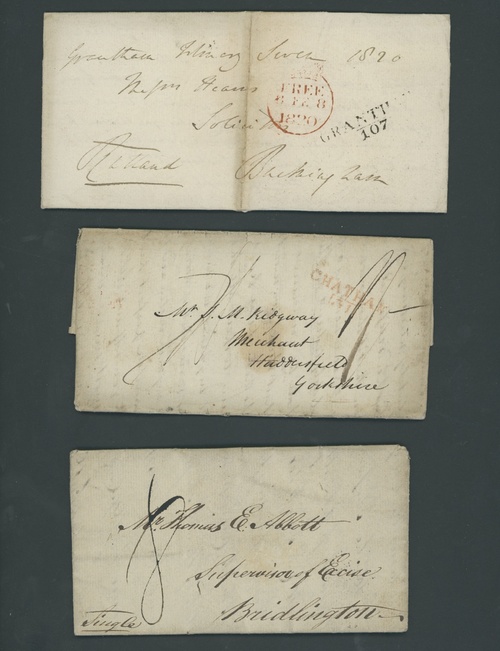 Grantham February Seven 1820
Messrs Hearn
FREE
8 FE 8
1820
GRANTHAM
107
Solicitors
Buckingham
CHATHAM
Mr. J. M. Ridgway
Merchant
Huddersfield
Yorkshire
8
Mr. Thomas E. Abbott
Supervisor of Excise
Bridlington
Single